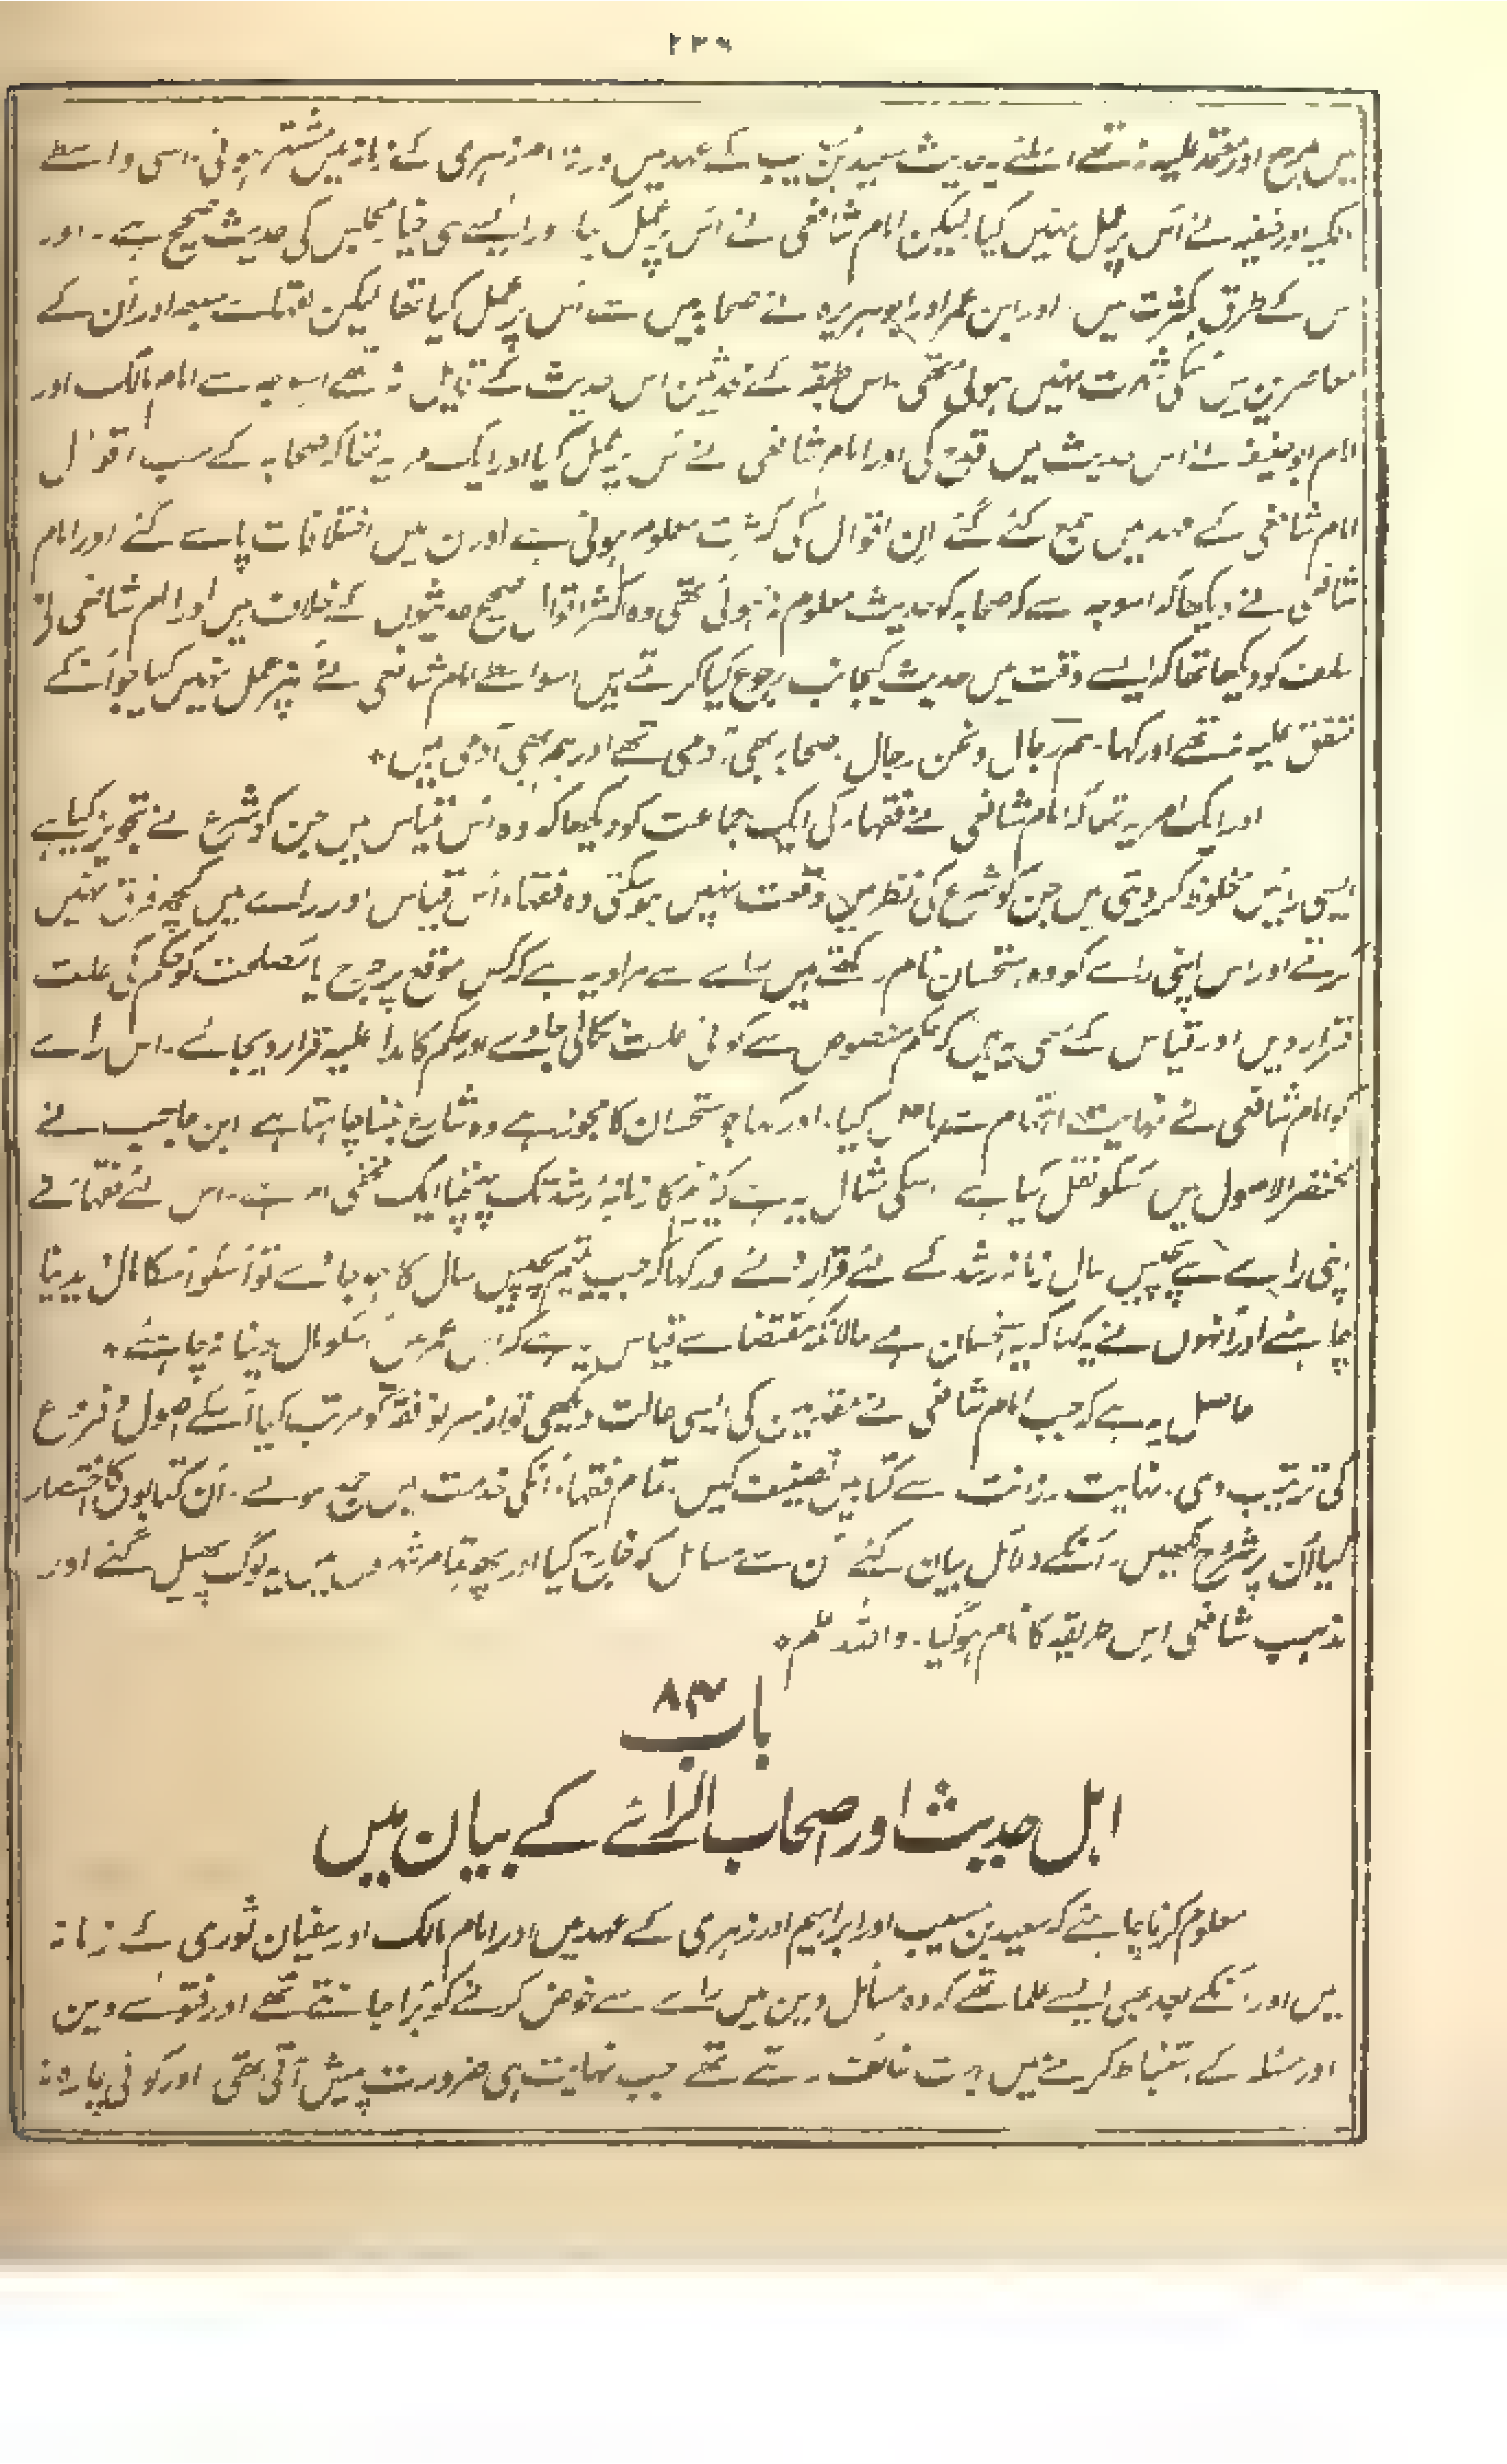 ۲۳۹
میں مرجح اور معتمد علیہ نہ تھے اسلئے یہ حدیث سعید بن مسیب کے عہد میں اور نہ امام زہری کے زمانہ میں مشتہر ہوئی۔ اسی واسطے
مالکیہ اور حنفیہ نے اس پر عمل نہیں کیا لیکن امام شافعی نے اس پر عمل کیا۔ اور ایسے ہی خیار مجلس کی حدیث صحیح ہے۔ اور
اس کے طرق بکثرت ہیں۔ اور ابن عمر اور ابوہریرہ نے صحابہ میں سے اس پر عمل کیا تھا لیکن فقہائے سبعہ اور ان کے
معاصرین میں اسکی شہرت نہیں ہوئی تھی۔ اس طبقہ کے محدثین اس حدیث کے قایل نہ تھے اسوجہ سے امام مالک اور
امام ابو حنیفہ نے اس حدیث میں قدح کی اور امام شافعی نے اس پر عمل کیا اور ایک امر یہ تھا کہ صحابہ کے سب اقوال
امام شافعی کے عہد میں جمع کئے گئے ان اقوال کی کثرت معلوم ہوئی ہے اور ان میں اختلافات پائے گئے اور امام
شافعی نے دیکھا کہ اسوجہ سے کہ صحابہ کو حدیث معلوم نہ ہوئی تھی وہ اکثر اقوال صحیح حدیثوں کے خلاف ہیں اور امام شافعی نے
سلف کو دیکھا تھا کہ ایسے وقت میں حدیث کیجانب رجوع کیا کرتے ہیں اسواسطے امام شافعی نے ان پر عمل نہیں کیا جو انکے
متفق علیہ نہ تھے اور کہا۔ ہم رجال ونحن رجال۔ صحابہ بھی آدمی تھے اور ہم بھی آدمی ہیں۔
اور ایک امر یہ تھا کہ امام شافعی نے فقہاء کی ایک جماعت کو دیکھا کہ وہ اس قیاس میں جن کو شرع نے تجویز کیا ہے
ایسی رائیں مخلوط کر دیتی ہیں جن کو شرع کی نظر میں وقعت نہیں ہوسکتی وہ فقہاء اس قیاس اور رائے میں کچھ فرق نہیں
کرتے اور اس اپنی رائے کو وہ استحسان نام رکھتے ہیں رائے سے مراد یہ ہے کہ کسی موقع پر حرج یا مصلحت کو حکم کی علت
قرار دیں اور قیاس کے معنی یہ ہیں کہ حکم منصوص سے کوئی علت نکالی جاوے اور حکم کا مدار علیہ قرار دیجائے۔ اس رائے
کو امام شافعی نے نہایت اہتمام سے باطل کیا۔ اور کہا جو استحسان کا مجوز ہے وہ شارع بننا چاہتا ہے ابن حاجب نے
مختصر الاصول میں اسکو نقل کیا ہے اسکی مثال یہ ہے کہ یتیم کا زمانہ رشد تک پہنچنا ایک مخفی امر ہے۔ اس لئے فقہا نے
اپنی رائے سے پچیس سال زمانہ رشد کے لئے قرار دئے اور کہا کہ جب یتیم پچیس سال کا ہو جائے تو اسکو اسکا مال دیدینا
چاہئے اور انہوں نے یہ کہا کہ یہ استحسان ہے حالانکہ مقتضائے قیاس یہ ہے کہ اس عمر میں اسکو مال دینا نہ چاہئے۔
حاصل یہ ہے کہ جب امام شافعی نے متقدمین کی ایسی حالت دیکھی تو از سر نو فقہ کو مرتب کیا اسکے اصول و فروع
کی ترتیب دی۔ نہایت سے کتابیں تصنیف کیں۔ تمام فقہاء انکی خدمت میں جمع ہوئے۔ ان کتابوں کا اختصار
کیا ان پر شروح لکھیں۔ انکے دلائل بیان کئے ان سے مسایل کو خارج کیا اور پھر تمام شہروں میں یہ لوگ پھیل گئے اور
مذہب شافعی اس طریقہ کا نام ہوگیا۔ واللہ اعلم۔
باب ۸۳
اہل حدیث اور اصحاب الرائے کے بیان میں
معلوم کرنا چاہئے کہ سعید بن مسیب اور ابراہیم اور زہری کے عہد میں اور امام مالک اور سفیان ثوری کے زمانہ
میں اور انکے بعد بھی ایسے علما تھے کہ وہ مسائل دین میں رائے سے خوض کرنے کو برا جانتے تھے اور فتوے دین
اور مسئلہ کے استنباط کرنے میں بہت خائف رہتے تھے جب نہایت ہی ضرورت پیش آتی تھی اور کوئی چارہ نہ